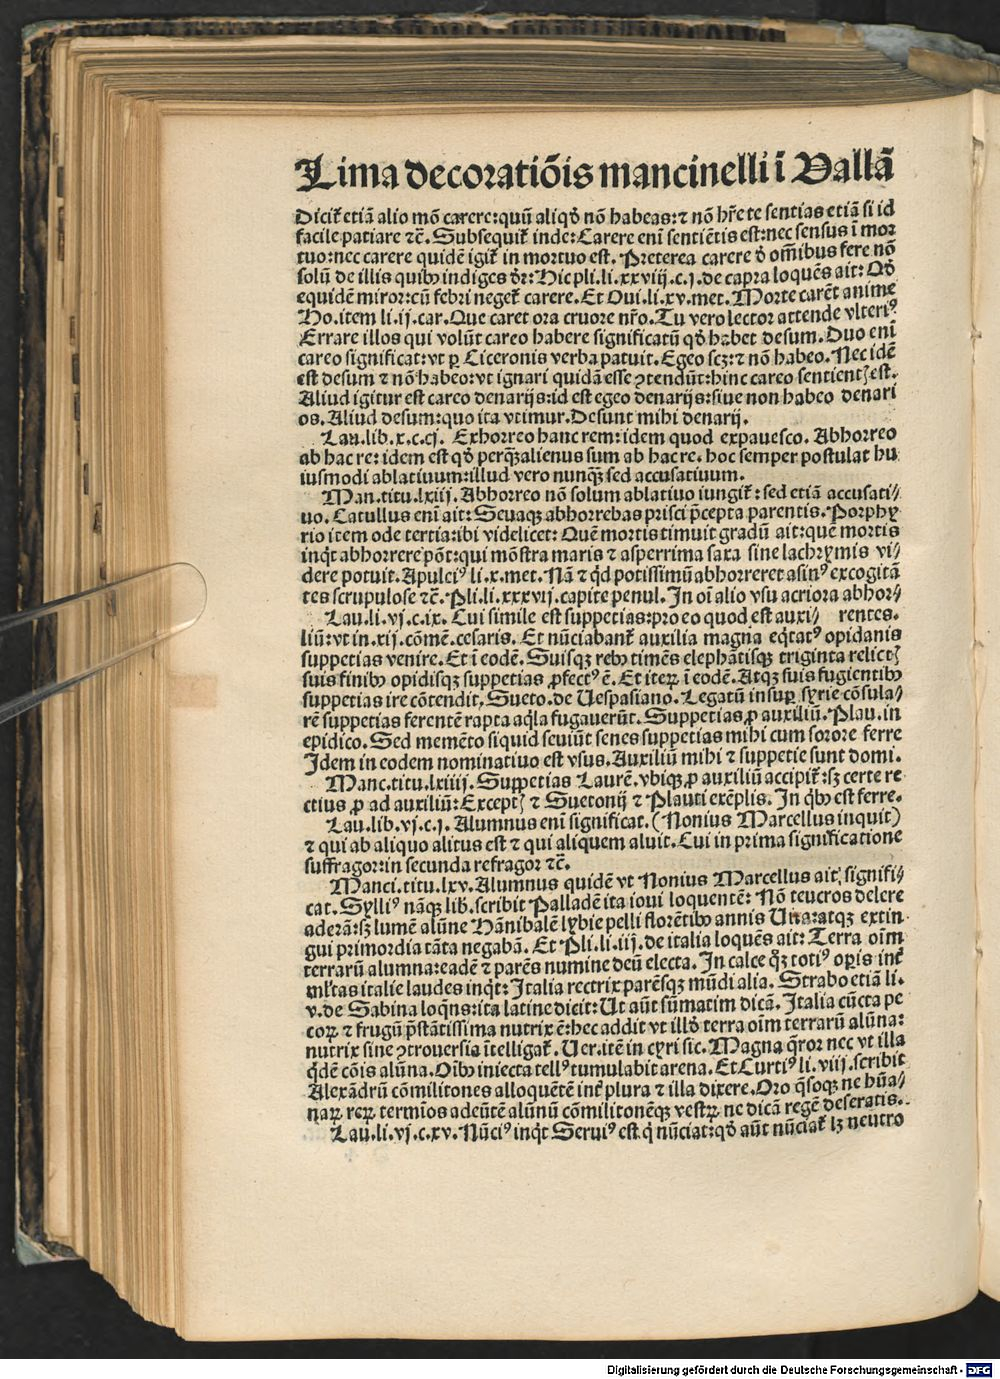 Lima decoratiõis mancinelli ĩ Vallã
Dicit᷑ etiã alio mõ carere: quũ aliqđ nõ habeas: ⁊ nõ hr̃e te sentias etiã si id
facile patiare ⁊c̃. Subsequit᷑ inde: Carere eni sentiẽtis est: nec sensus ĩ mor
tuo: nec carere quidẽ igit᷑ in mortuo est. Preterea carere đ om̃ibus fere nõ
solũ de illis quibꝫ indiges đr: Hic pli. li. xxviij. c. j. de capra loquẽs ait: Qđ
equidẽ miror: cũ febri neget᷑ carere. Et Oui. li. xv. met. Morte carẽt anime
Ho. item li. ij. car. Que caret ora cruore nr̃o. Tu vero lector attende vlteriꝰ
Errare illos qui volũt careo habere significatũ qđ habet desum. Duo eni
careo significat: vt ꝑ Ciceronis verba patuit. Egeo scꝫ: ⁊ nõ habeo. Nec idẽ
est desum ⁊ nõ habeo: vt ignari quidã esse ꝯtendũt: hinc careo sentientꝭ est.
Aliud igitur est careo denarijs: id est egeo denarijs: siue non habeo denari
os. Aliud desum: quo ita vtimur. Desunt mihi denarij.
Lau. lib. x. c. cj. Exhorreo hanc rem: idem quod expauesco. Abhorreo
ab hac re: idem est qđ perq̃ꝫ alienus sum ab hac re. hoc semper postulat hu
iusmodi ablatiuum: illud vero nunq̃ꝫ sed accusatiuum.
Man. titu. lxiij. Abhorreo nõ solum ablatiuo iungit᷑: sed etiã accusati⸗
uo. Catullus eni ait: Seuaqꝫ abhorrebas prisci p̃cepta parentis. Porphy
rio item ode tertia: ibi videlicet: Quẽ mortis timuit gradũ ait: quẽ mortis
inq̇t abhorrere põt: qui mõstra maris ⁊ asperrima saxa sine lachrymis vi⸗
dere potuit. Apulciꝰ li. x. met. Nã ⁊ qđ potissimũ abhorreret asinꝰ excogitã
tes scrupulose ⁊c̃. Pli. li. xxxvij. capite penul. In oĩ alio vsu acriora abhor⸗
Lau. li. vj. c. ix. Cui simile est suppetias: pro eo quod est auxi⸗ rentes.
liũ: vt in. xij. cõmẽ. cesaris. Et nũciabant᷑ auxilia magna eq̇tatꝰ opidanis
suppetias venire. Et ĩ eodẽ. Suisqꝫ rebꝫ timẽs elephãtisqꝫ triginta relictꝭ
suis finibꝫ opidisqꝫ suppetias ꝓfectꝰ ẽ. Et iteꝝ ĩ eodẽ. Atqꝫ suis fugientibꝫ
suppetias ire cõtendit. Sueto. de Uespasiano. Legatũ insuꝑ syrie cõsula⸗
rẽ suppetias ferentẽ rapta aq̇la fugauerũt. Suppetias ꝓ auxiliũ. Plau. in
epidico. Sed memẽto siquid seuiũt senes suppetias mihi cum sorore ferre
Idem in eodem nominatiuo est vsus. Auxiliũ mihi ⁊ suppetie sunt domi.
Manc. titu. lxiiij. Suppetias Laurẽ. vbiqꝫ ꝓ auxiliũ accipit᷑: sꝫ certe re
ctius ꝓ ad auxiliũ: Exceptꝭ ⁊ Suetonij ⁊ Plauti exẽplis. In q̇bꝫ est ferre.
Lau. lib. vj. c. j. Alumnus eni significat. (Nonius Marcellus inquit)
⁊ qui ab aliquo alitus est ⁊ qui aliquem aluit. Cui in prima significatione
suffragor: in secunda refragor ⁊c̃.
Manci. titu. lxv. Alumnus quidẽ vt Nonius Marcellus ait: signifi⸗
cat. Sylliꝰ nãqꝫ lib. scribit Palladẽ ita ioui loquentẽ: Nõ teucros delere
aderã: sꝫ lumẽ alũne Hãnibalẽ lybie pelli florẽtibꝫ annis Uita: atqꝫ extin
gui primordia tãta negabã. Et Pli. li. iij. de italia loquẽs ait: Terra oim̃
terrarũ alumna: eadẽ ⁊ parẽs numine deũ electa. In calce q̊ꝫ totiꝰ oꝑis int᷑
ml̃tas italie laudes inq̇t: Italia rectrix parẽsqꝫ mũdi alia. Strabo etiã li.
v. de Sabina loq̃ns: ita latine dicit: Ut aũt sũmatim dicã. Italia cũcta pe
coꝝ ⁊ frugũ p̃stãtissima nutrix ẽ: hec addit vt illđ terra oim̃ terrarũ alũna:
nutrix sine ꝯtrouersia ĩtelligat᷑. Uer. itẽ in cyri sic. Magna q̃ror nec vt illa
q̇dẽ cõis alũna. Oĩbꝫ iniecta tellꝰ tumulabit arena. Et Curtiꝰ li. viij. scribit
Alexãdrũ cõmilitones alloquẽtẽ int᷑ plura ⁊ illa dixere. Oro q̃soqꝫ ne hũa⸗
naꝝ reꝝ termĩos adeũtẽ alũnũ cõmilitonẽqꝫ vestꝝ ne dicã regẽ deseratis.
Lau. li. vj. c. xv. Nũciꝰ inq̇t Seruiꝰ est q̇ nũciat: qđ aũt nũciat᷑ lꝫ neutro
Digitalisierung gefördert durch die Deutsche Forschungsgemeinschaft - DFG